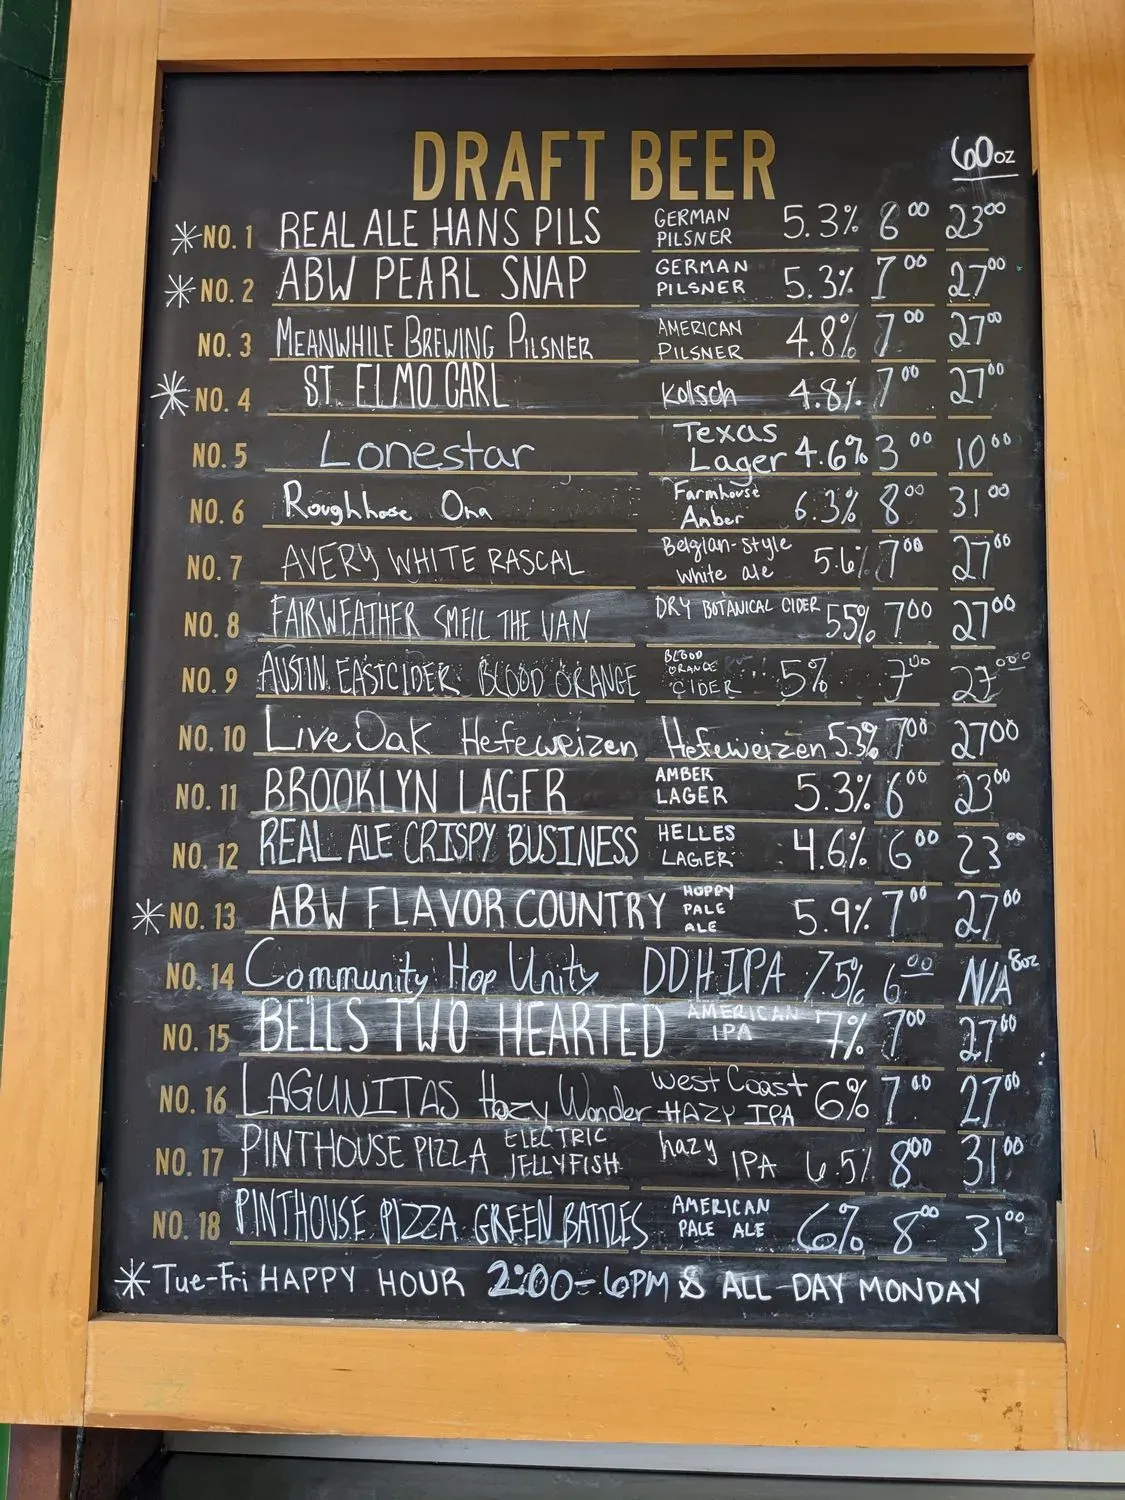 DRAFT BEER 60oz
* NO. 1 REAL ALE HANS PILS GERMAN PILSNER 5.3% 6⁰⁰ 23⁰⁰
* NO. 2 ABW PEARL SNAP GERMAN PILSNER 5.3% 7⁰⁰ 27⁰⁰
NO. 3 MEANWHILE BREWING PILSNER AMERICAN PILSNER 4.8% 7⁰⁰ 27⁰⁰
* NO. 4 ST. ELMO CARL Kolsch 4.8% 7⁰⁰ 27⁰⁰
NO. 5 Lonestar Texas Lager 4.6% 3⁰⁰ 10⁰⁰
NO. 6 Roughhose Ona Farmhouse Amber 6.3% 8⁰⁰ 31⁰⁰
NO. 7 AVERY WHITE RASCAL Belgian-Style White ale 5.6% 7⁰⁰ 27⁰⁰
NO. 8 FAIRWEATHER SMELL THE VAN DRY BOTANICAL CIDER 55% 7⁰⁰ 27⁰⁰
NO. 9 AUSTIN EASTCIDER BLOOD ORANGE BLOOD ORANGE CIDER 5% 7⁰⁰
NO. 10 Live Oak Hefeweizen Hefeweizen 5.3% 7⁰⁰ 27⁰⁰
NO. 11 BROOKLYN LAGER AMBER LAGER 5.3% 6⁰⁰ 23⁰⁰
NO. 12 REAL ALE CRISPY BUSINESS HELLES LAGER 4.6% 6⁰⁰ 23⁰⁰
* NO. 13 ABW FLAVOR COUNTRY HOPPY PALE ALE 5.9% 7⁰⁰ 27⁰⁰
NO. 14 Community Hop Unity DDH IPA 7.5% 6⁰⁰ N/A 8oz
NO. 15 BELLS TWO HEARTED AMERICAN IPA 7% 7⁰⁰ 27⁰⁰
NO. 16 LAGUNITAS Hazy Wonder West Coast HAZY IPA 6% 7⁰⁰ 27⁰⁰
NO. 17 PINTHOUSE PIZZA ELECTRIC JELLYFISH hazy IPA 6.5% 8⁰⁰ 31⁰⁰
NO. 18 PINTHOUSE PIZZA GREEN BATTLES AMERICAN PALE ALE 6% 8⁰⁰ 31⁰⁰
* Tue-Fri HAPPY HOUR 2:00-6PM & ALL-DAY MONDAY